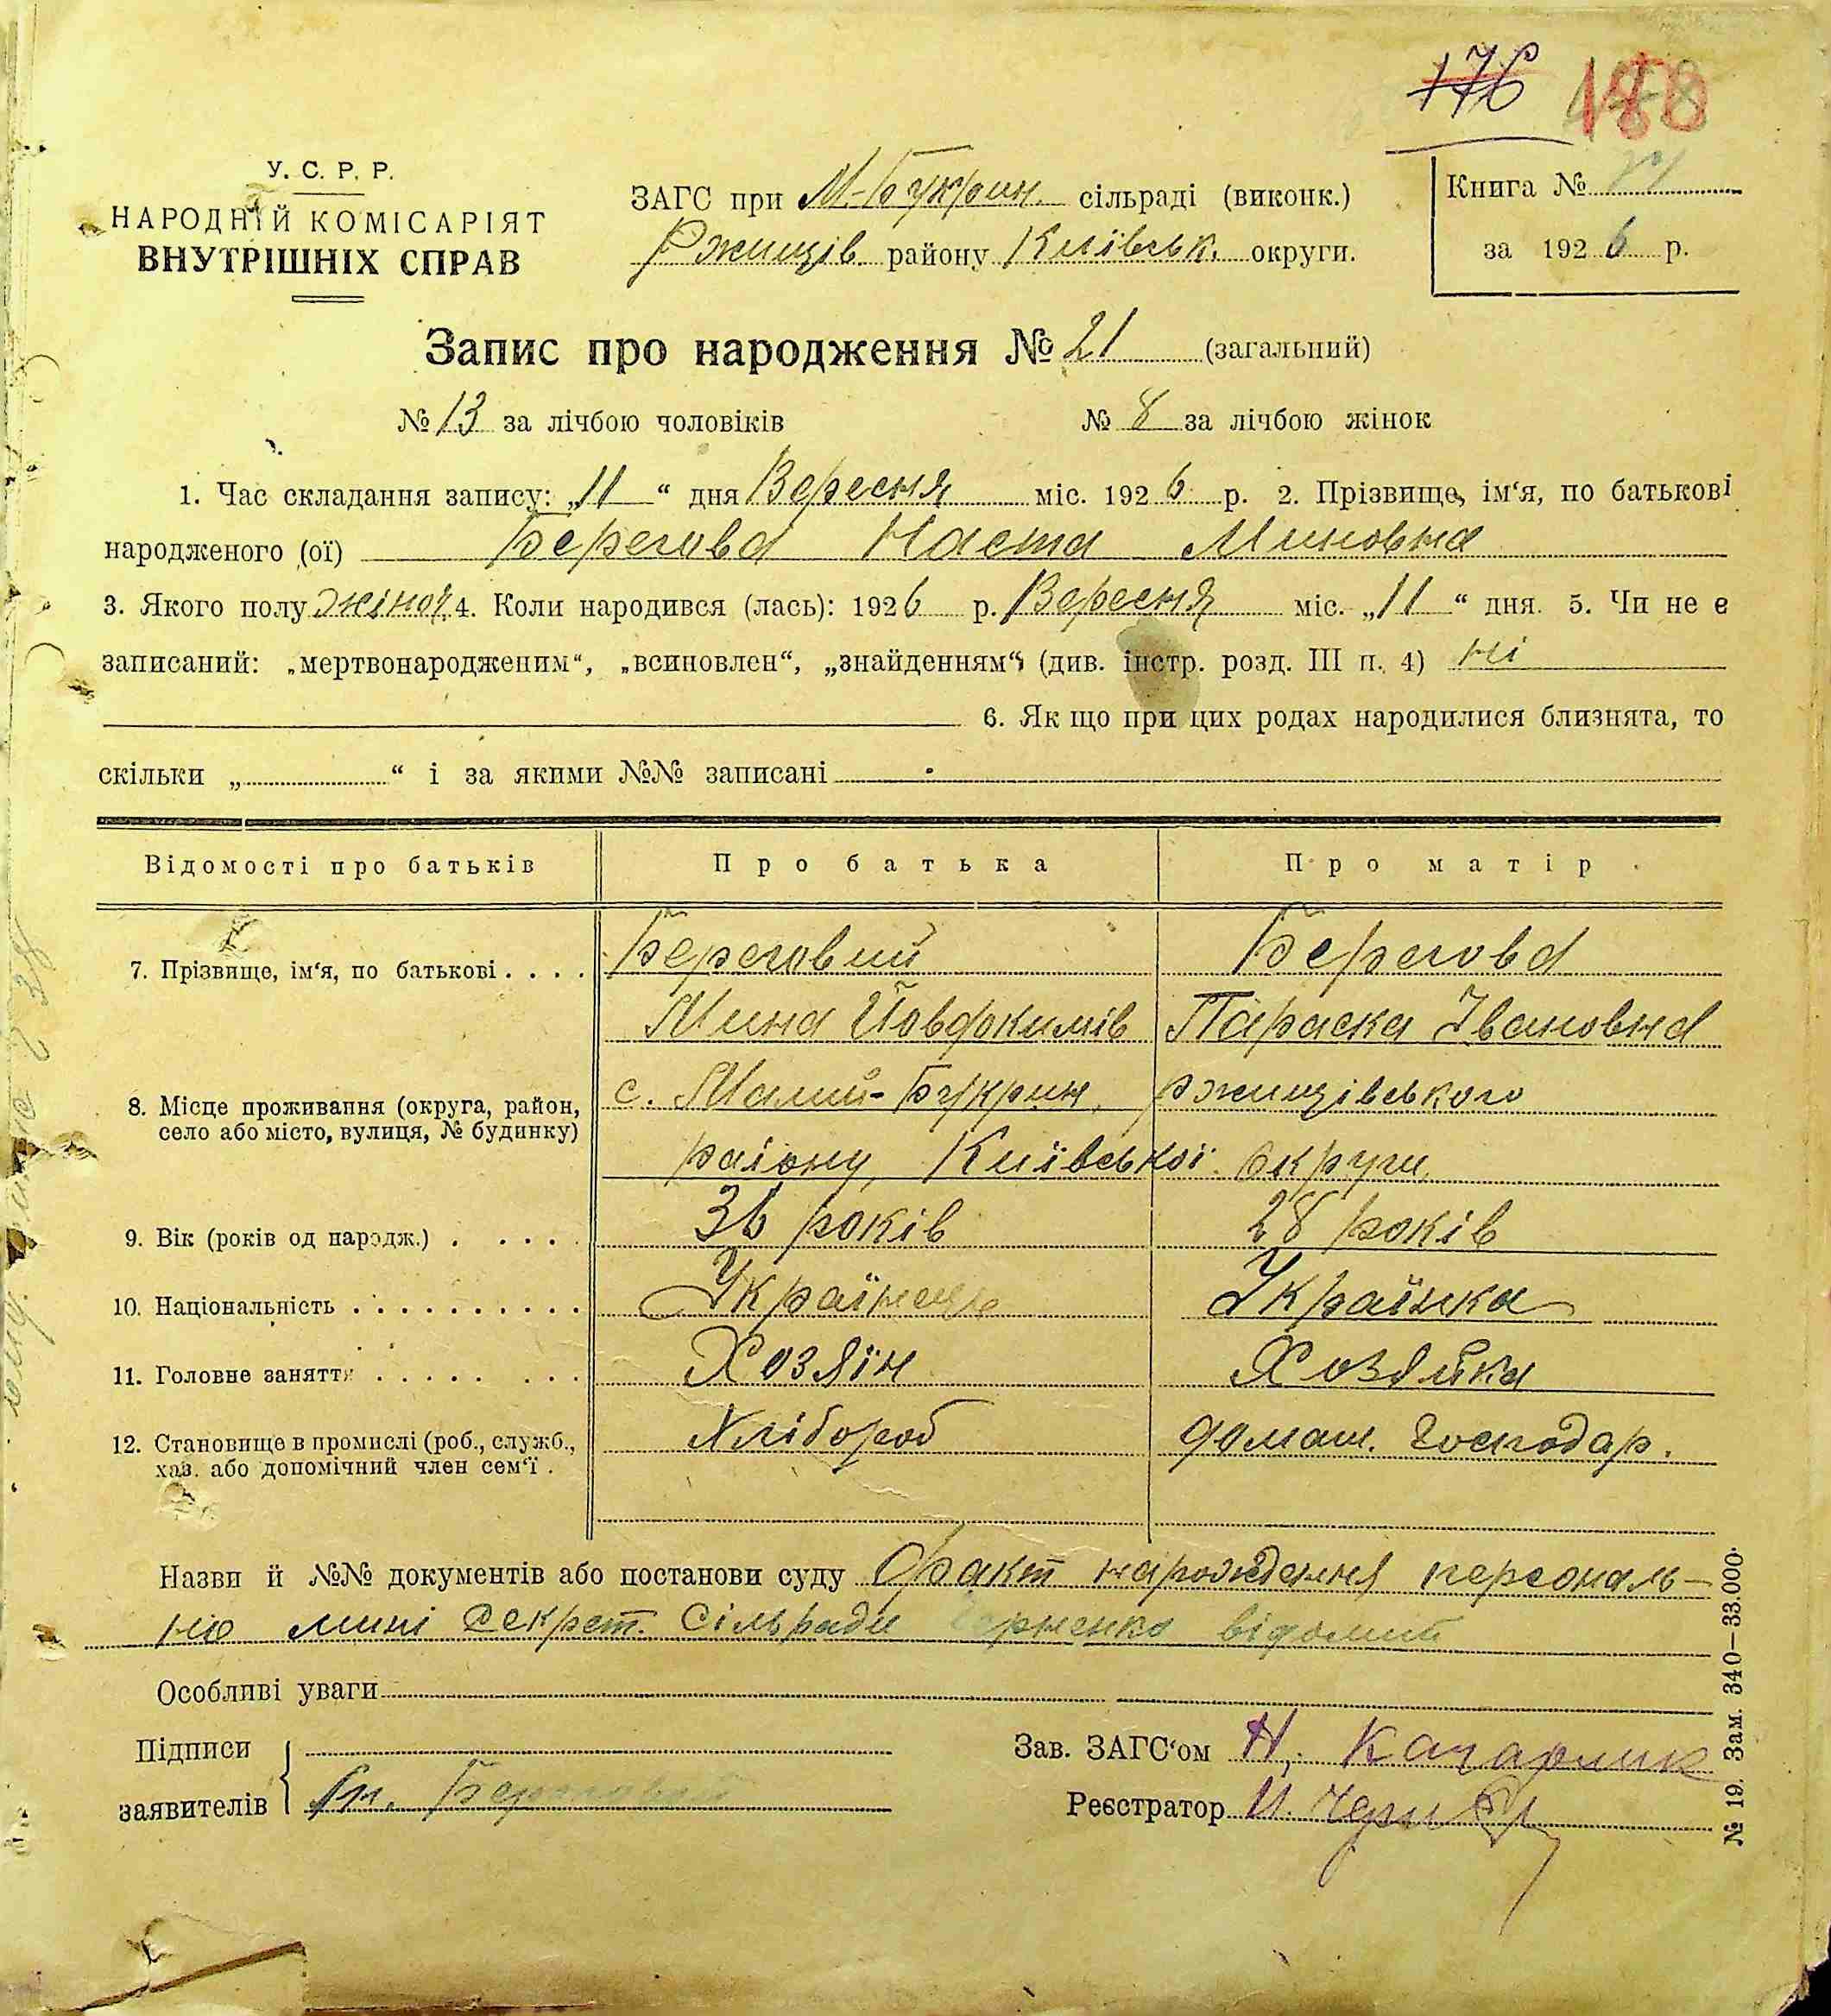 176 188
У. С. Р. Р.
НАРОДНІЙ КОМІСАРІЯТ
ВНУТРІШНІХ СПРАВ
ЗАГС при М-Букрин. сільраді (виконк.)
Ржищів. району Київськ. округи.
Книга №
за 1926 р.
Запис про народження № 21 (загальний)
№ 13 за лічбою чоловіків № 8 за лічбою жінок
1. Час складання запису: „11“ дня Вересня міс. 1926 р. 2. Прізвище, ім‘я, по батькові
народженого (ої) Берегова Наста Миновна
3. Якого полу жіноч. 4. Коли народився (лась): 1926 р. Вересня міс. „11“ дня. 5. Чи не є
записаний: „мертвонародженим“, „всиновлен“, „знайденням“ (див. інстр. розд. III п. 4) ні
6. Як що при цих родах народилися близнята, то
скільки „ “ і за якими №№ записані
Відомості про батьків Про батька Про матір
7. Прізвище, ім‘я, по батькові . . . . Береговий Берегова
Мина Йовдокимів Параска Івановна
8. Місце проживання (округа, район, село або місто, вулиця, № будинку) с. Малий-Букрин, Ржищівського
району, Київської округи,
9. Вік (років од народж.) . . . . . 36 років 28 років
10. Національність . . . . . . . . . . Українець Українка
11. Головне заняття . . . . . . . . Хозяін Хозяйка
12. Становище в промислі (роб., служб., хаз. або допомічний член сем‘ї . Хлібороб домаш. господар.
Назви й №№ документів або постанови суду Факт народження персональ-
но мині секрет. сільради відомий
Особливі уваги
Підписи
заявителів Береговий
Зав. ЗАГС‘ом Н. Кагарлик
Реєстратор И.
№ 19. Зам. 340—33.000.